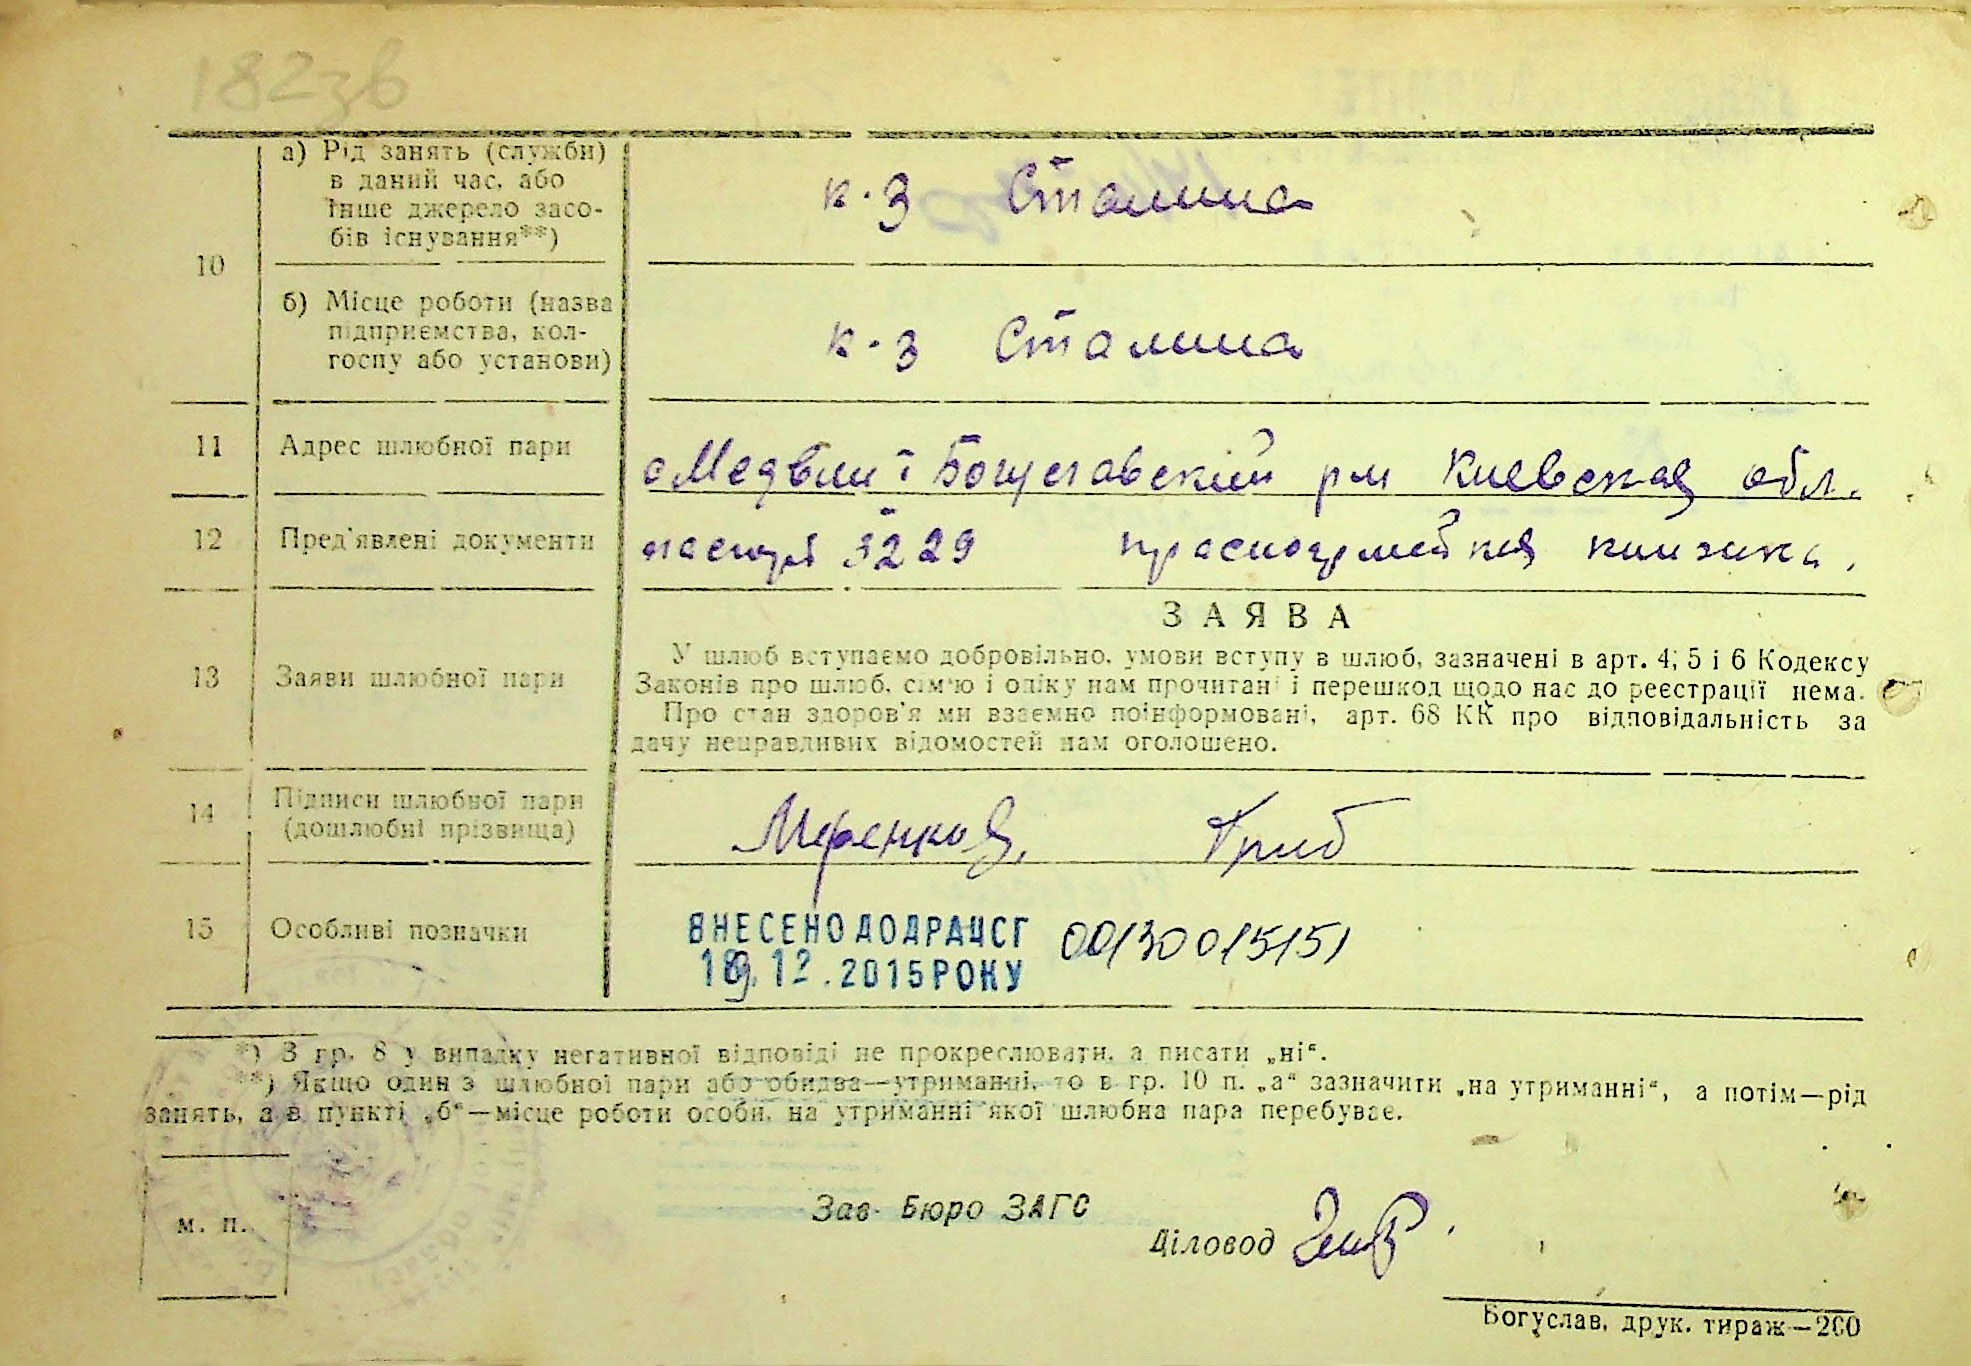 182зв
а) Рід занять (служби)
в даний час, або
інше джерело засо-
бів існування**)
к-з Сталина
10
б) Місце роботи (назва
підприємства, кол-
госпу або установи)
к-з Сталина
11 Адрес шлюбної пари
с Медвин Богуславский р-н Киевская обл.
12 Пред'явлені документи
паспорт 3229 красноармейкая книжка.
ЗАЯВА
13 Заяви шлюбної пари
У шлюб вступаємо добровільно, умови вступу в шлюб, зазначені в арт. 4, 5 і 6 Кодексу
Законів про шлюб, сім'ю і опіку нам прочитані і перешкод щодо нас до реєстрації нема.
Про стан здоров'я ми взаємно поінформовані, арт. 68 КК про відповідальність за
дачу неправдивих відомостей нам оголошено.
14 Підписи шлюбної пари
(дошлюбні прізвища)
Гриб
15 Особливі позначки
ВНЕСЕНО ДО ДРАЦСГ 00130015151
19.12.2015 РОКУ
*) В гр. 8 у випадку негативної відповіді не прокреслювати, а писати „ні“.
**) Якщо один з шлюбної пари або обидва—утриманні, то в гр. 10 п. „а“ зазначити „на утриманні“, а потім—рід
занять, а в пункті „б“—місце роботи особи, на утриманні якої шлюбна пара перебуває.
м. п.
Зав. Бюро ЗАГС
Діловод
Богуслав, друк. тираж—200